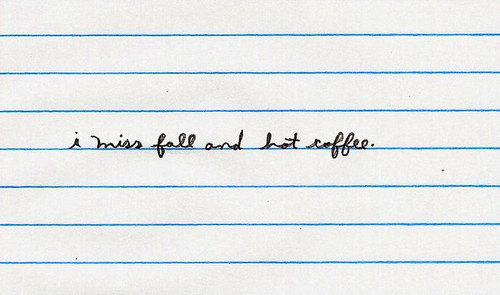 i miss fall and hot coffee.